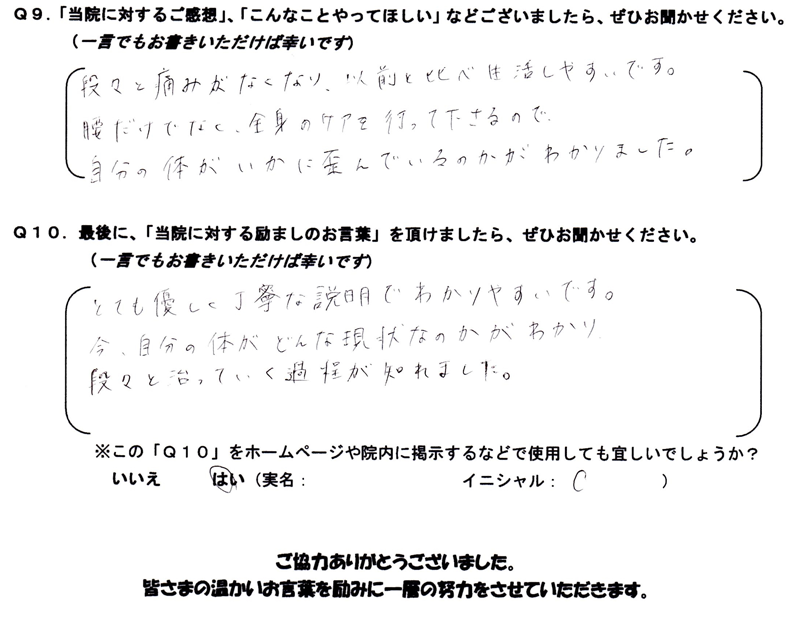 Q9.「当院に対するご感想」、「こんなことやってほしい」などございましたら、ぜひお聞かせください。
(一言でもお書きいただけば幸いです)
段々と痛みがなくなり、以前と比べ生活しやすいです。
腰だけでなく、全身のケアを行って下さるので、
自分の体がいかに歪んでいるのかがわかりました。
Q10.最後に、「当院に対する励ましのお言葉」を頂けましたら、ぜひお聞かせください。
(一言でもお書きいただけば幸いです)
とても優しく丁寧な説明でわかりやすいです。
今、自分の体がどんな現状なのかがわかり、
段々と治っていく過程が知れました。
※この「Q10」をホームページや院内に掲示するなどで使用しても宜しいでしょうか?
いいえ はい(実名: イニシャル: C )
ご協力ありがとうございました。
皆さまの温かいお言葉を励みに一層の努力をさせていただきます。